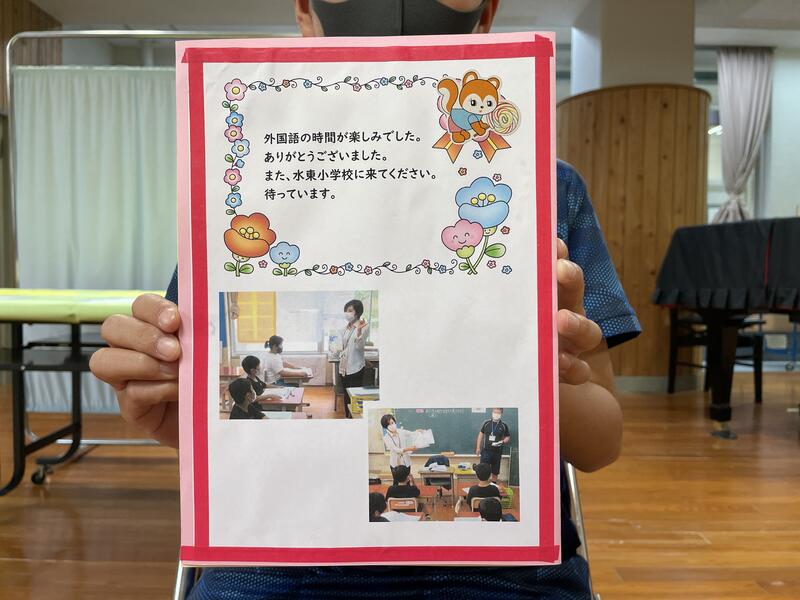 外国語の時間が楽しみでした。
ありがとうございました。
また、水東小学校に来てください。
待っています。